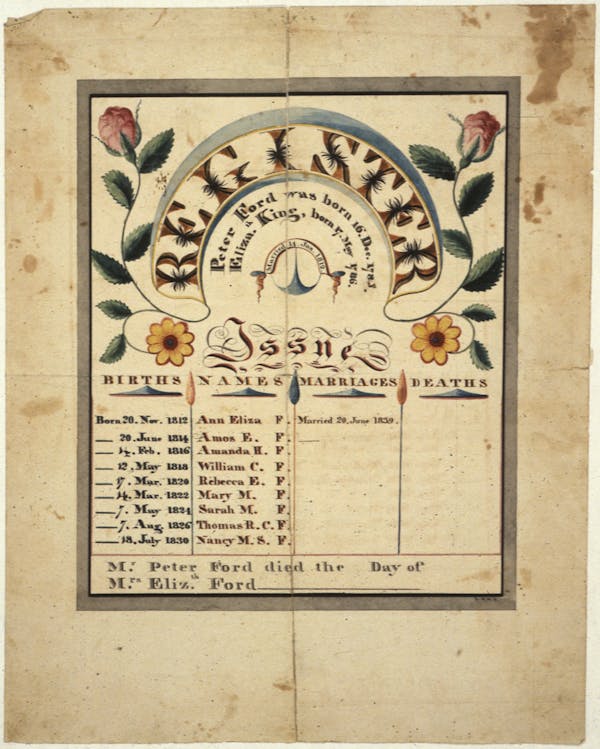 REGISTER
Peter Ford was born 16. Dec. 1783.
& Eliza. King, born 7. May 1786.
Married 14. Jan. 1812
Issue
BIRTHS NAMES MARRIAGES DEATHS
Born 20. Nov. 1812 Ann Eliza F. Married 20. June 1839.
20. June 1814 Amos E. F.
14. Feb. 1816 Amanda H. F.
12. May 1818 William C. F.
17. Mar. 1820 Rebecca E. F.
14. Mar. 1822 Mary M. F.
7. May 1824 Sarah M. F.
7. Aug. 1826 Thomas R. C. F.
18. July 1830 Nancy M. S. F.
Mr. Peter Ford died the Day of
Mrs Eliz.th Ford